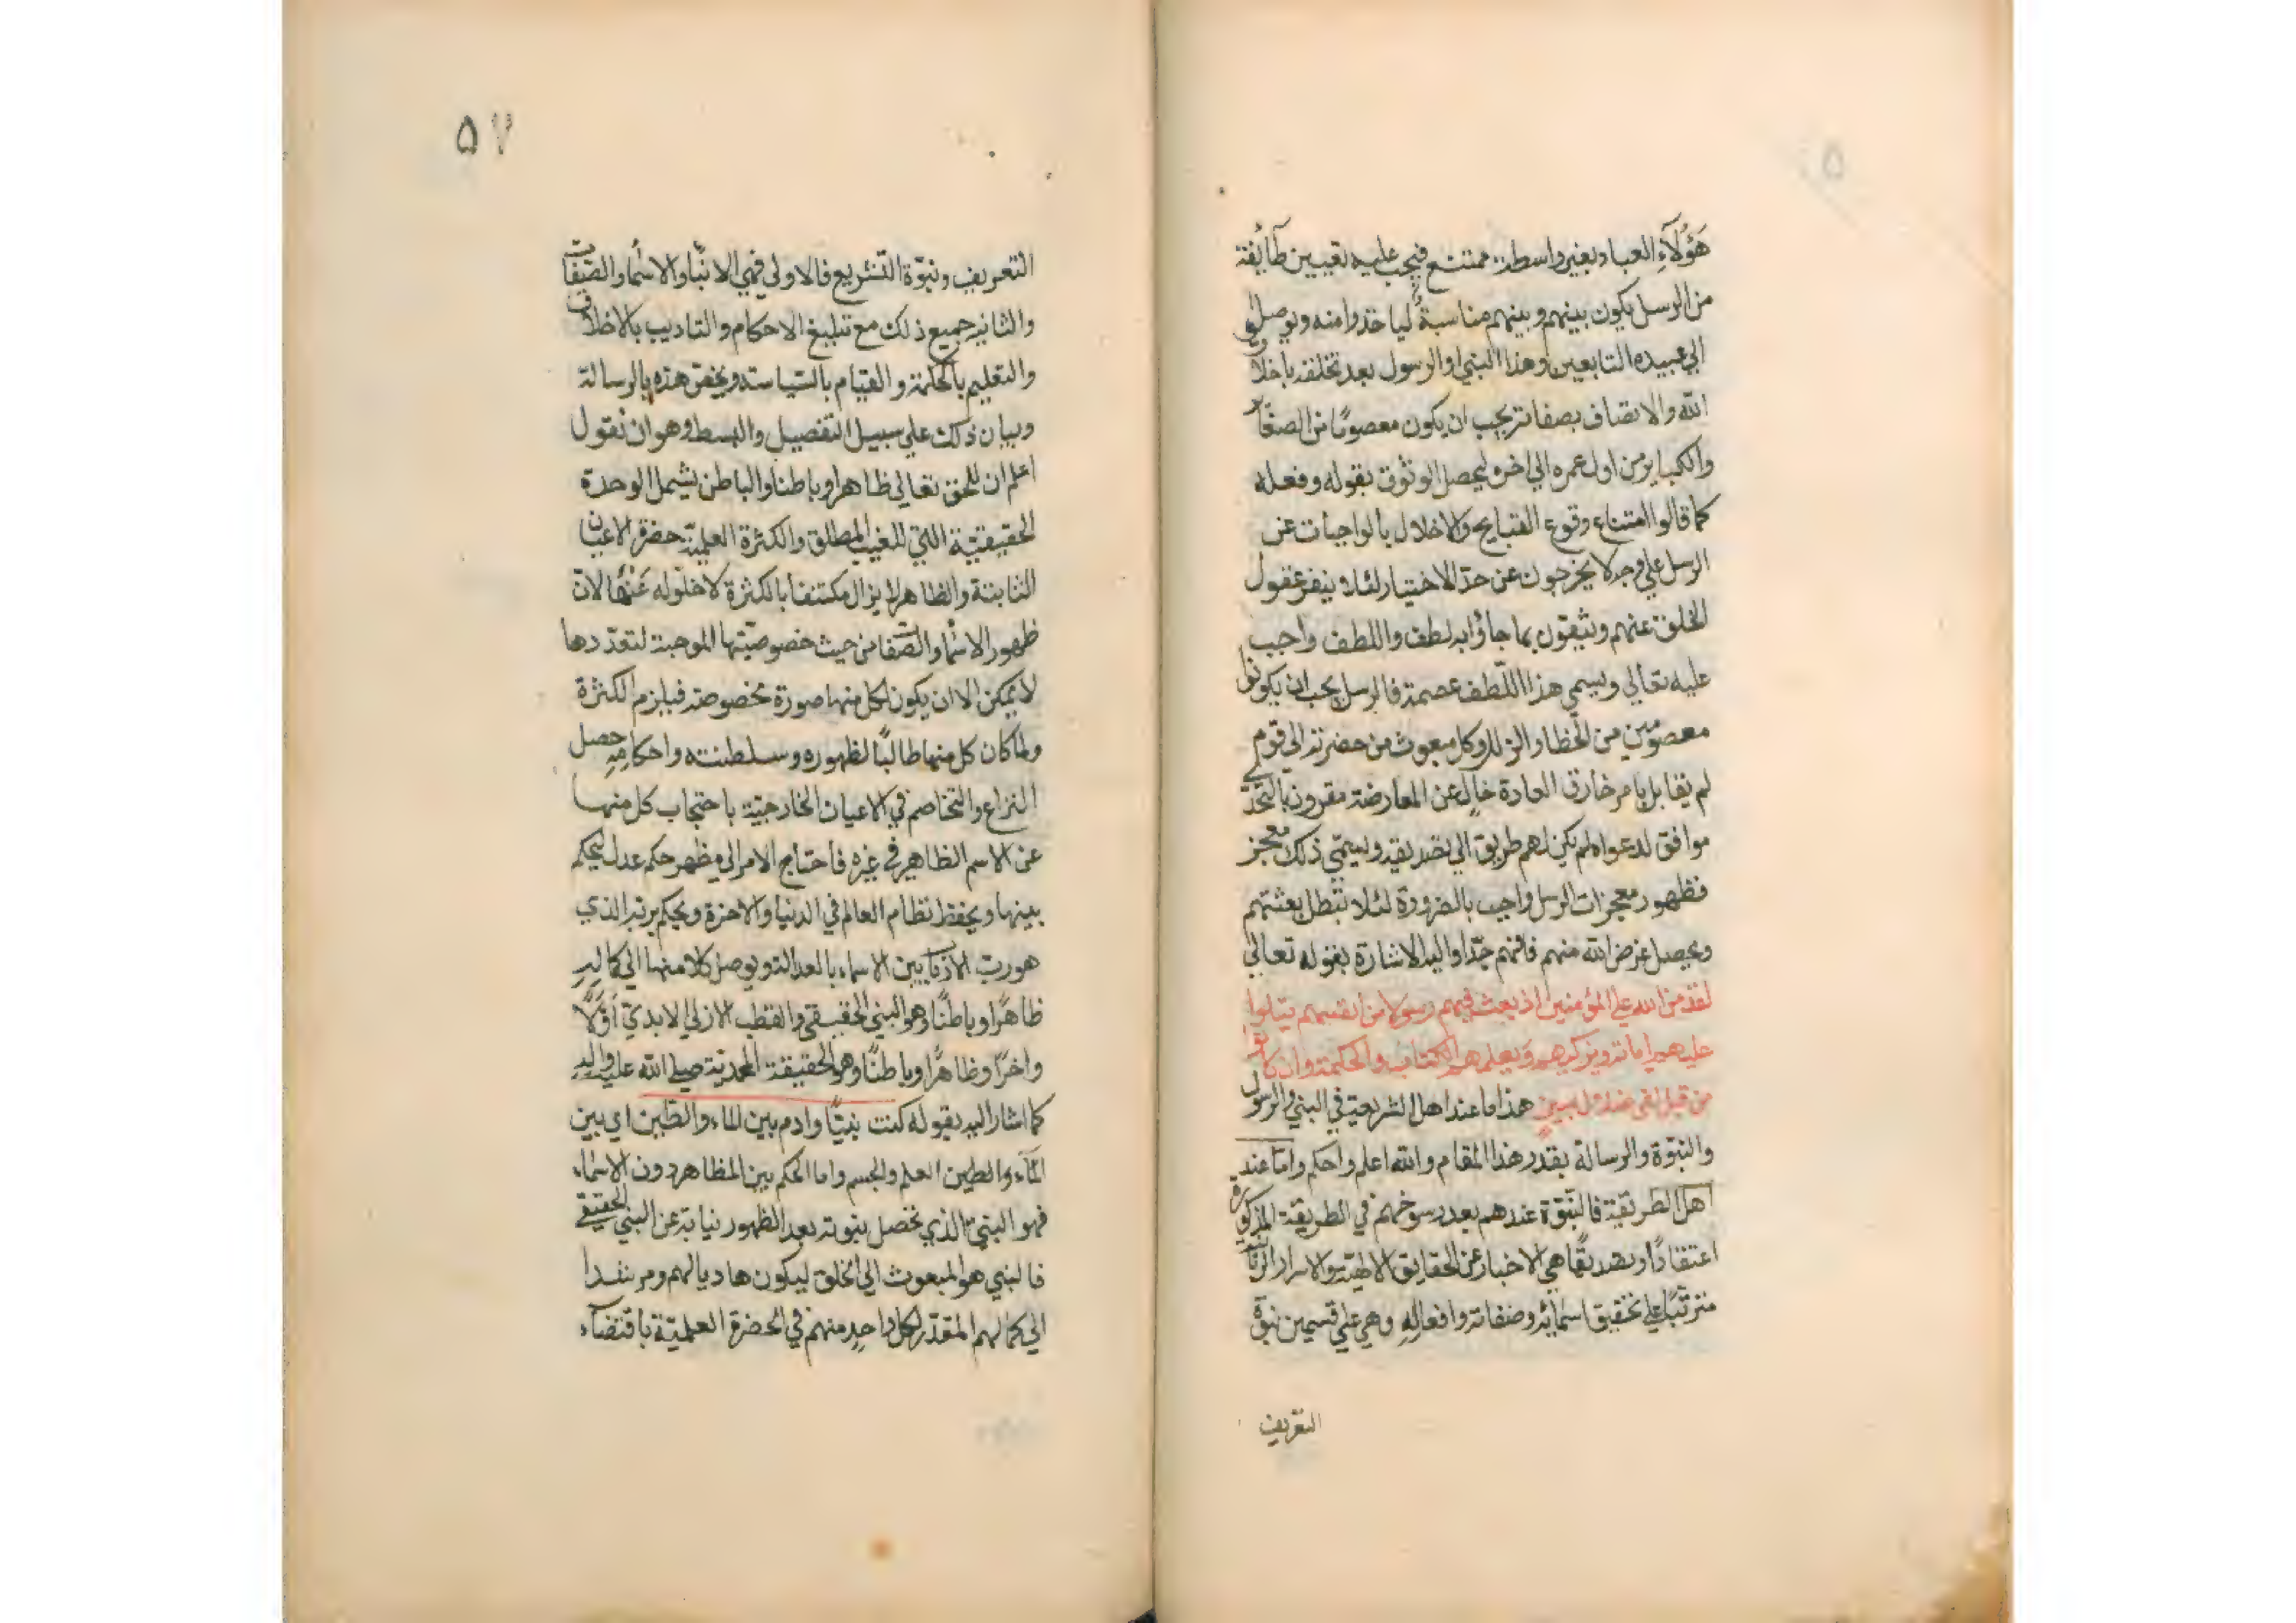 هَؤُلَآءِ العباد بغير واسطة ممتنع فيجب عليه تعيين طآئفة
من الرسل يكون بينهم وبينهم مناسبةٌ لياخذوا منه ويوصلوا
الي عبيده التابعين وهذا النبي او الرسول بعد تخلقه باخلاق
الله والاتصاف بصفاته يجب ان يكون معصومًا من الصغآير
والكبايرمن اول عمره الي اخره ليحصل الوثوق بقوله وفعله
كما قالوا امتناع وقوع القبايح والاخلال بالواجبات عن
الرسل علي وجه لا يخرجون عن حدّ الاختيار لئلا ينفر عقول
الخلق عنهم ويثقون بما جاؤا به لطف واللطف واجب
عليه تعالي ويسمي هذا اللّطف عصمة فالرسل يجب ان يكونوا
معصومين من الخطا والزلل وكل مبعوث من حضرته الي قوم
لم يقابل بامر خارق العادة خالٍ عن المعارضة مقرون بالتحدّي
موافق لدعواه لم يكن لهم طريق الي تصديقه ويسمّي ذلك معجز
فظهور معجزات الرسل واجب بالضرورة لئلا تبطل بعثتهم
ويحصل غرض الله منهم فافهم جدّا واليه الاشارة بقوله تعالي
لقد من الله علي المؤمنين اذ بعث فيهم رسولا من انفسهم يتلوا
عليهم اياته ويزكيهم ويعلمهم الكتاب والحكمة وان كانوا
من قبل لفي ضلال مبين هذا ما عند اهل الشريعة في النبي والرسول
والنبوّة والرسالة بقدر هذا المقام والله اعلم واحكم وامّا عند
اهل الطريقة فالنبّوة عندهم بعد رسوخهم في الطريقة المذكورة
اعتقادًا وتصديقًا هي الاخبار عن الحقايق الالهيّة والاسرار الربّانية
مترتّبًا علي تحقيق اسمائه وصفاته وافعالِهِ وهي علي قسمين نبوّة
التعريف
٥٧
التعريف ونبوّة التشريع فالاولي فهي الانبّاء والاسماء والصّفات
والثانيه جميع ذلك مع تبليغ الاحكام والتاديب بالاخلاق
والتعليم بالحكمة والقيام بالسّياسة ويختصّ هذه بالرسالة
وبيان ذلك علي سبيل التفصيل والبسط وهو ان نقول
اعلم ان للحق تعالي ظاهرا وباطنا والباطن يشمل الوحدة
الحقيقيّة اللتي للغيب المطلق والكثرة العلميّة حضرة الاعيان
الثابتة والظاهر لا يزال مكتنفا بالكثرة لا خلّوله عَنْهَا لانّ
ظهور الاسماء والصّفات من حيث خصوصيّتها الموجبة لتعدّدها
لا يمكن الا ان يكون لكل منها صورة مخصوصة فيلزم الكثرة
ولما كان كل منها طالبًا لظهوره وسلطنته واحكامِهِ حصل
النزاع والتخاصم في الاعيان الخارجيّة باحتجاب كل منها
عن الاسم الظاهر في غيره فاحتاج الامر الي مظهر حكم عدل ليحكم
بينها ويحفظ نظام العالم في الدنيا والاخرة ويحكم بربّه الذي
هو ربّ الارباب بين الاسماء بالعدالة ويوصل كلا منها الي كمالِهِ
ظاهرًا وباطنًا وهو النبي الحقيقي والقطب الازلي الابديّ اَوَّلًا
واخرًا وظاهرًا وباطنًا وهو الحقيقة المحمديّة صلي الله عليه واله
كما اشار اليه بقوله كنت نبيّا وادم بين الماء والطين اي بين
المآء والطين العلم والجسم واما الحكم بين المظاهر دون الاسماء
فهو النبيّ الذي تحصل نبوته بعد الظهور نيابة عن النبي الحقيقي
فالنبي هو المبعوث الي الخلق ليكون هاديا لهم ومرشدا
الي كمالهم المقدّر لكل واحدٍ منهم في الحضرة العلميّة باقتضآء